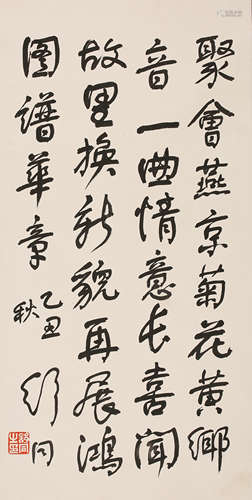 聚會燕京菊花黄鄉
音一曲情意長喜聞
故里换新貌再展鴻
圖譜華章
乙丑秋
舒同